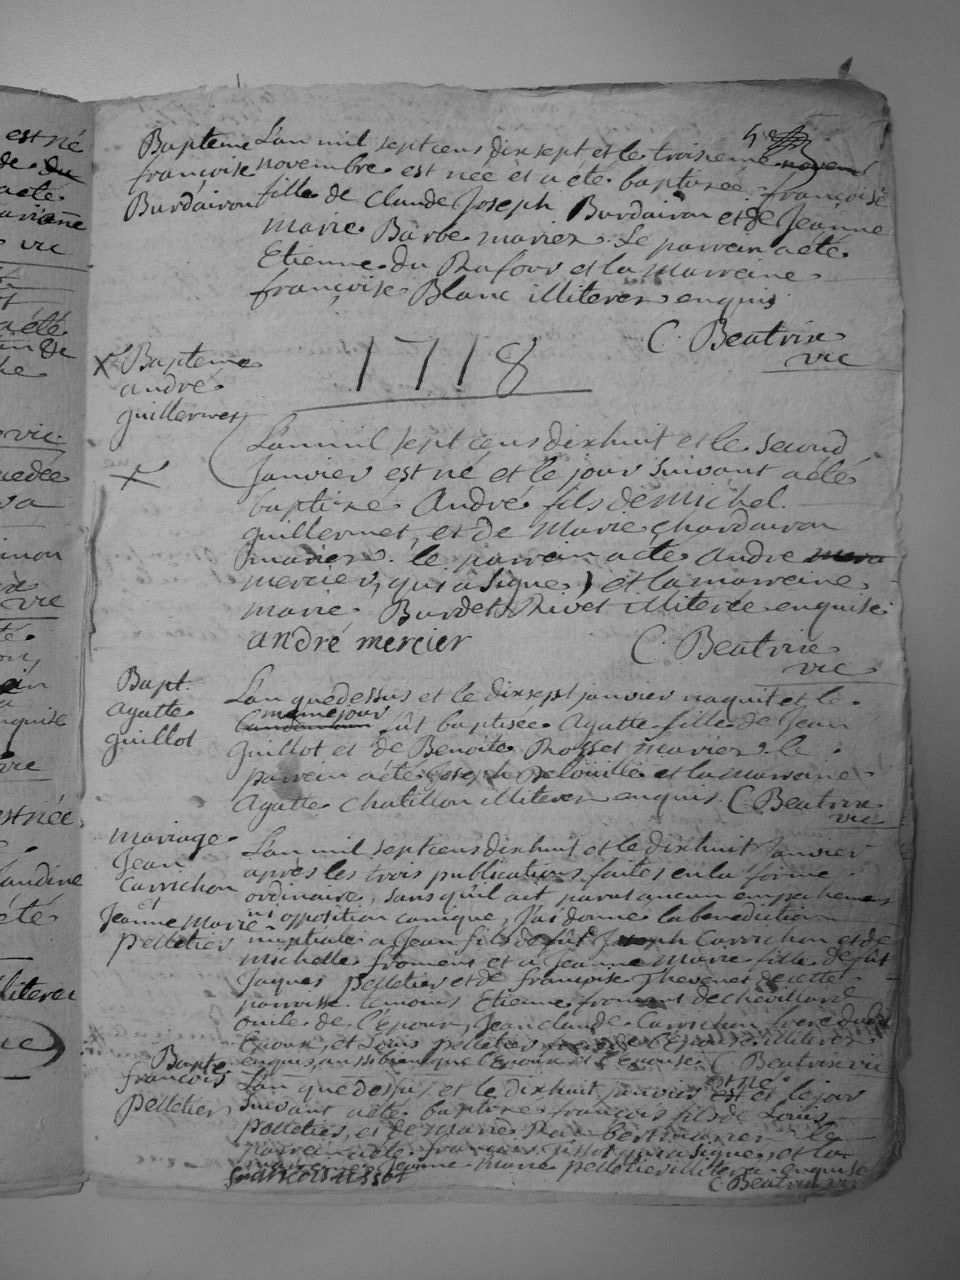 est né
de du
acté
vic
5e
Bapteme
françoise
Burdairon
L'an mil sept cens dix sept et le troisieme novem
novembre est née et a eté baptisée françoise
fille de Claude Joseph Burdairon et de Jeanne
Marie Barbe mariez. Le parrein a eté
Etienne du Rafour et la Marreine
françoise Blanc illiterez enquis
C. Beatrix
vic
1718
X Bapteme
andré
guillermet
X
L'an mil sept cens dix huit et le second
Janvier est né et le jour suivant a eté
baptisé André fils de Michel
guillermet, et de Marie Chardairon
mariez. le parrein a eté André
mercier, qui a signé) et la marreine
Marie Burdet Rivet illiterée enquise
andré mercier
C. Beatrix
vic
Bapt.
Agatte
guillot
L'an que dessus et le dix sept janvier naquit et le
même jour fût baptisée Agatte fille de Jean
guillot et de Benoite Rosset mariez. le
parrein a eté Joseph et la Marreine
Agatte Chatillon illiterez enquis. C. Beatrix
vic
mariage
Jean
Carrichon
et
Jeanne Marie
pelletier
L'an mil sept cens dix huit et le dix huit Janvier
après les trois publications faites en la forme
ordinaire, sans qu'il ait paru aucun empechement
ni opposition canique, j'ai donné la benediction
nuptiale a Jean fils de fût Joseph Carrichon et de
Michelle froment et a Jeanne Marie fille de fût
Jaques pelletier et de françoise Thevenet de cette
parroisse. temoins Etienne froment de chevillard
oncle de l'epoux, Jean claude Carrichon frere dudit
Epoux, et Louis pelletier frere de l'Epouse illiterez
enquis, aussi bien que l'Epoux et l'Epouse. C. Beatrix vic
Bapte
françois
pelletier
L'an que dessus et le dix huit janvier est né et le jour
suivant a eté baptisé françois fils de Louis
pelletier, et de Marie mariez le
parrein a eté françois tissot qui a signé, et la
marreine Jeanne Marie pelletier illiterée enquise
francois tissot
C. Beatrix vic